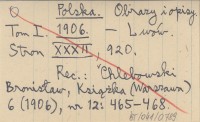 Polska. Obrazy i opisy.
Tom I. 1906. — Lwów.
Stron XXXII 920.
Rec.: Chlebowski
Bronisław, Książka (Warszawa)
6 (1906), nr 12: 465-468.